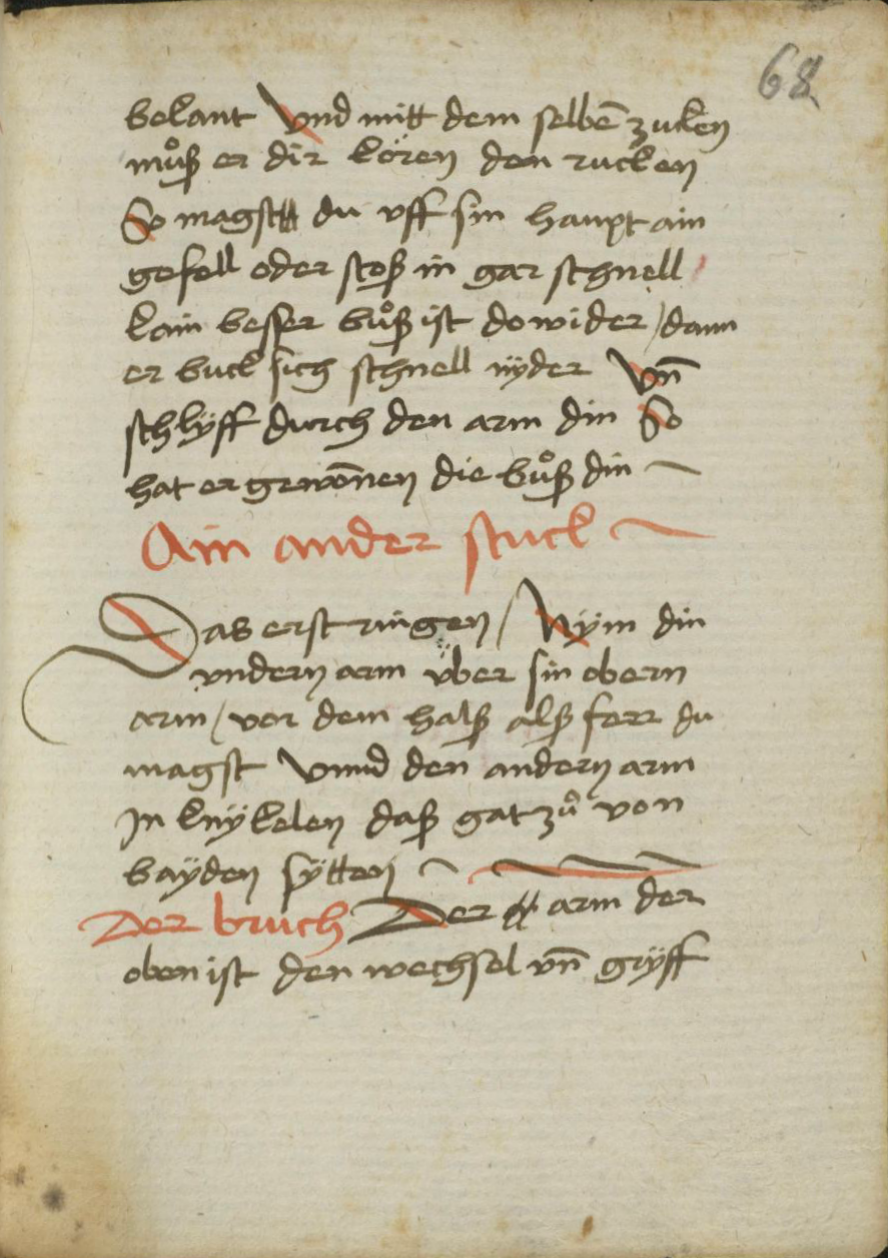 68
bekant Vnd mitt dem selbē zucken
můß er dir kören den rucken
So magst du vff sin haupt ain
gefell oder stoß in gar schnell
kain besser bůß ist do wider / dann
er buck sich schnell nÿder Vn̄
schlÿff durch den arm din So
hat er gewōnen die bůß din
Ain ander stuck
Das erst ringen / Nÿm din
vndern arm v̈ber sin obern
arm / vor dem halß alß ferr du
magst Vnnd den andern arm
In knÿkelen daß gat zů von
baÿden sÿtten
Der bruch Der arm der
oben ist den wechsel vn̄ grÿff